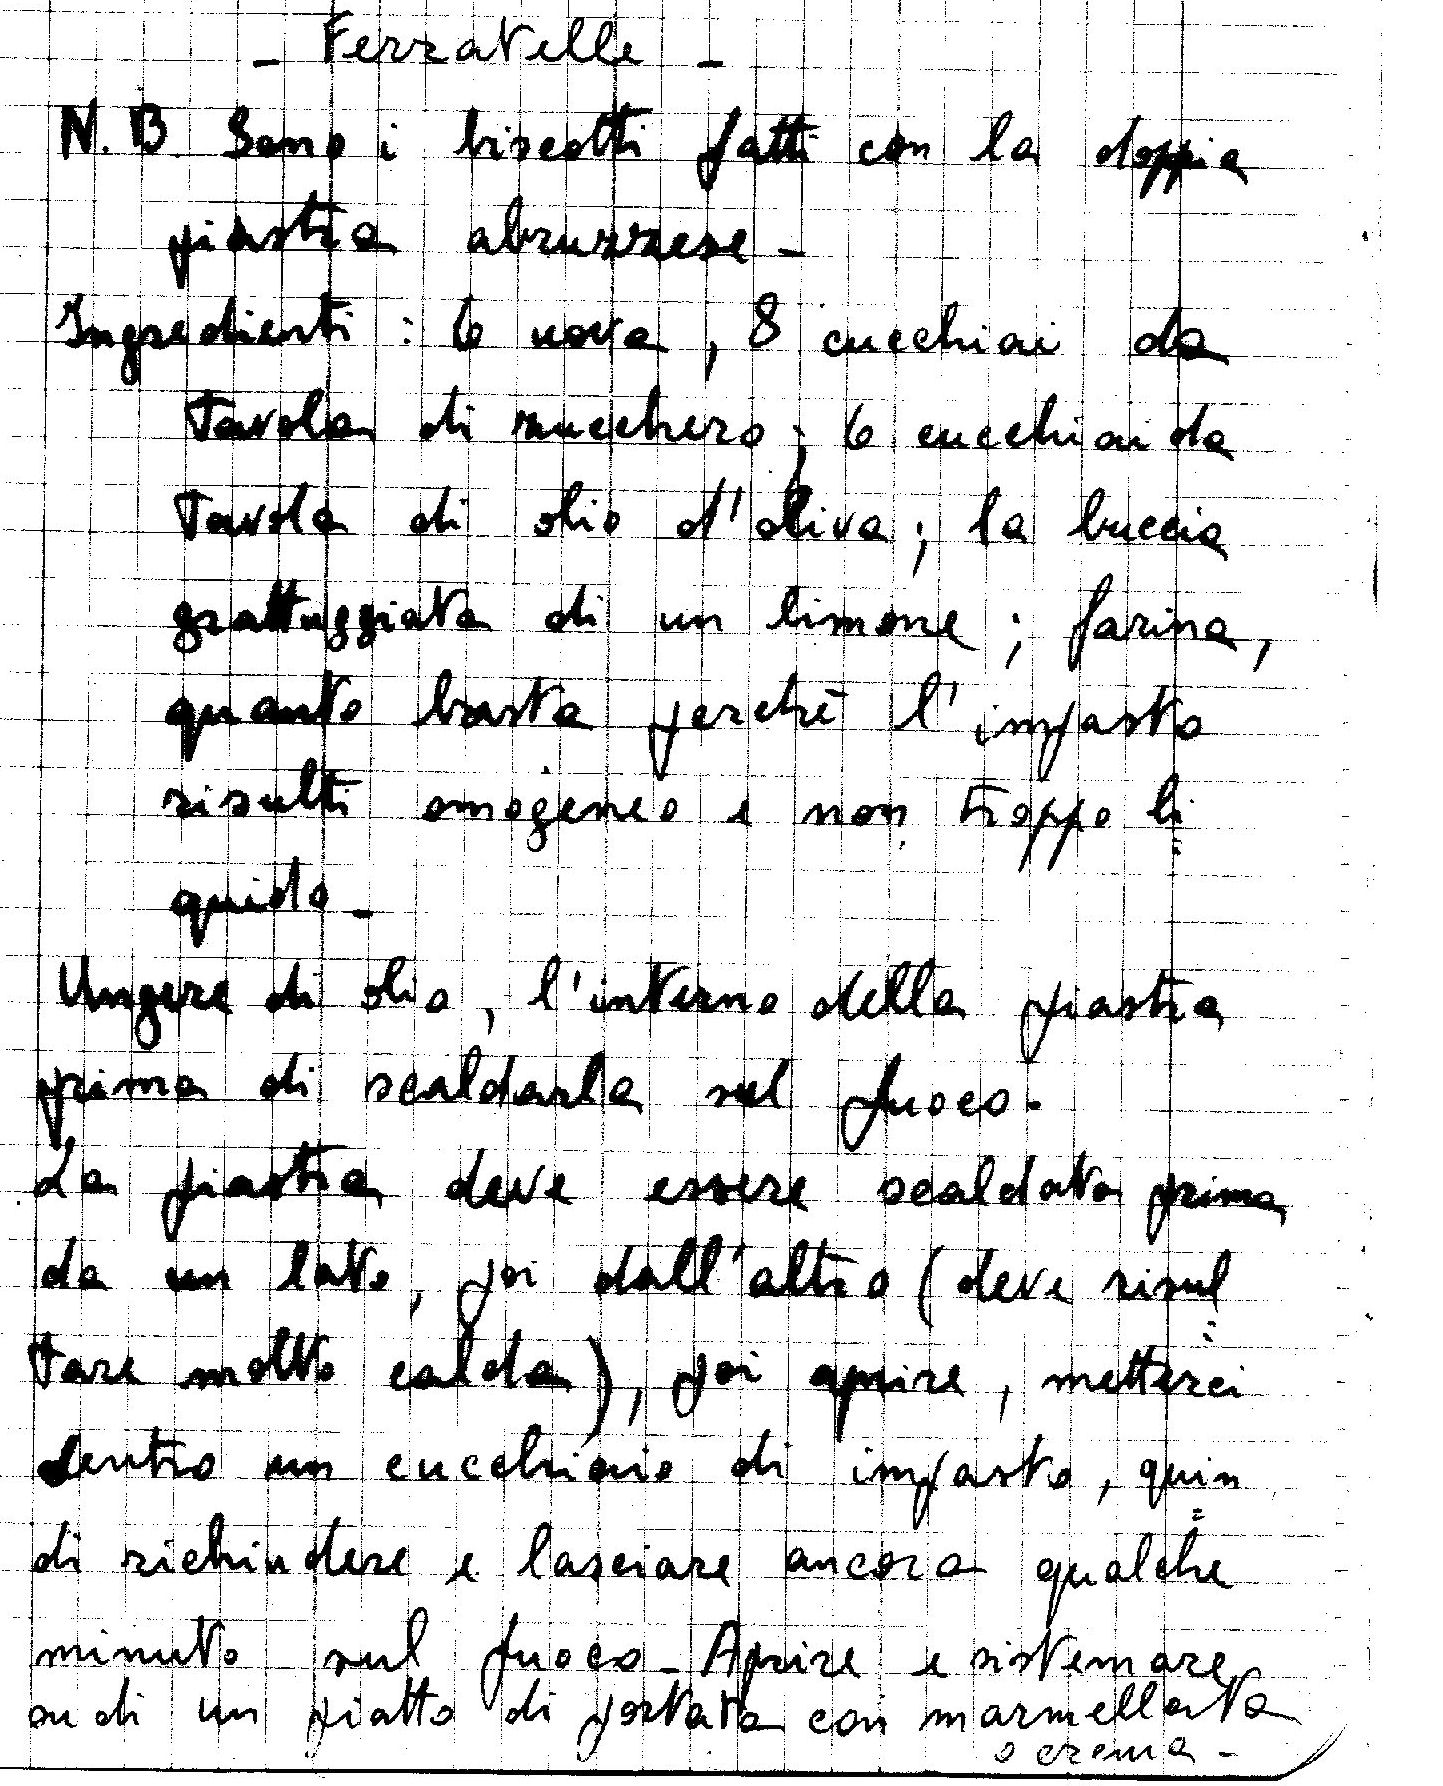 - Ferratelle -
N.B Sono i biscotti fatti con la doppia
piastra abruzzese -
Ingredienti : 6 uova, 8 cucchiai da
tavola di zucchero; 6 cucchiai da
tavola di olio d'oliva; la buccia
grattuggiata di un limone; farina,
quanto basta perchè l'impasto
risulti omogeneo e non troppo li=
quido -
Ungere di olio, l'interno della piastra
prima di scaldarla sul fuoco -
La piastra deve essere scaldata prima
da un lato, poi dall'altro (deve risul=
tare molto calda), poi aprire, metterci
dentro un cucchiaio di impasto, quin=
di richiudere e lasciare ancora qualche
minuto sul fuoco - Aprire e sistemare
su di un piatto di portata con marmellata
o crema -